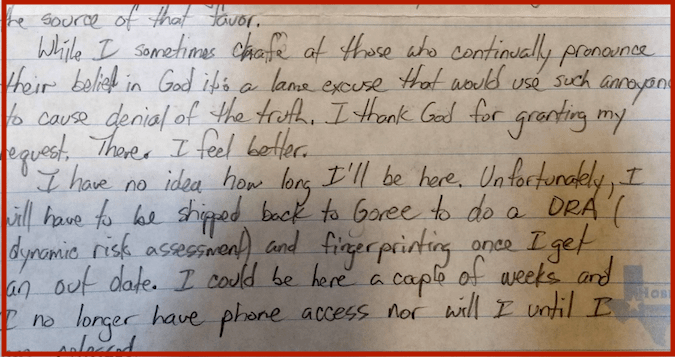 the source of that favor.
While I sometimes chafe at those who continually pronounce
their belief in God it's a lame excuse that would use such annoyan
to cause denial of the truth. I thank God for granting my
request. There. I feel better.
I have no idea how long I'll be here. Unfortunately, I
will have to be shipped back to Goree to do a DRA (
dynamic risk assessment) and fingerprinting once I get
an out date. I could be here a caple of weeks and
I no longer have phone access nor will I until I
released